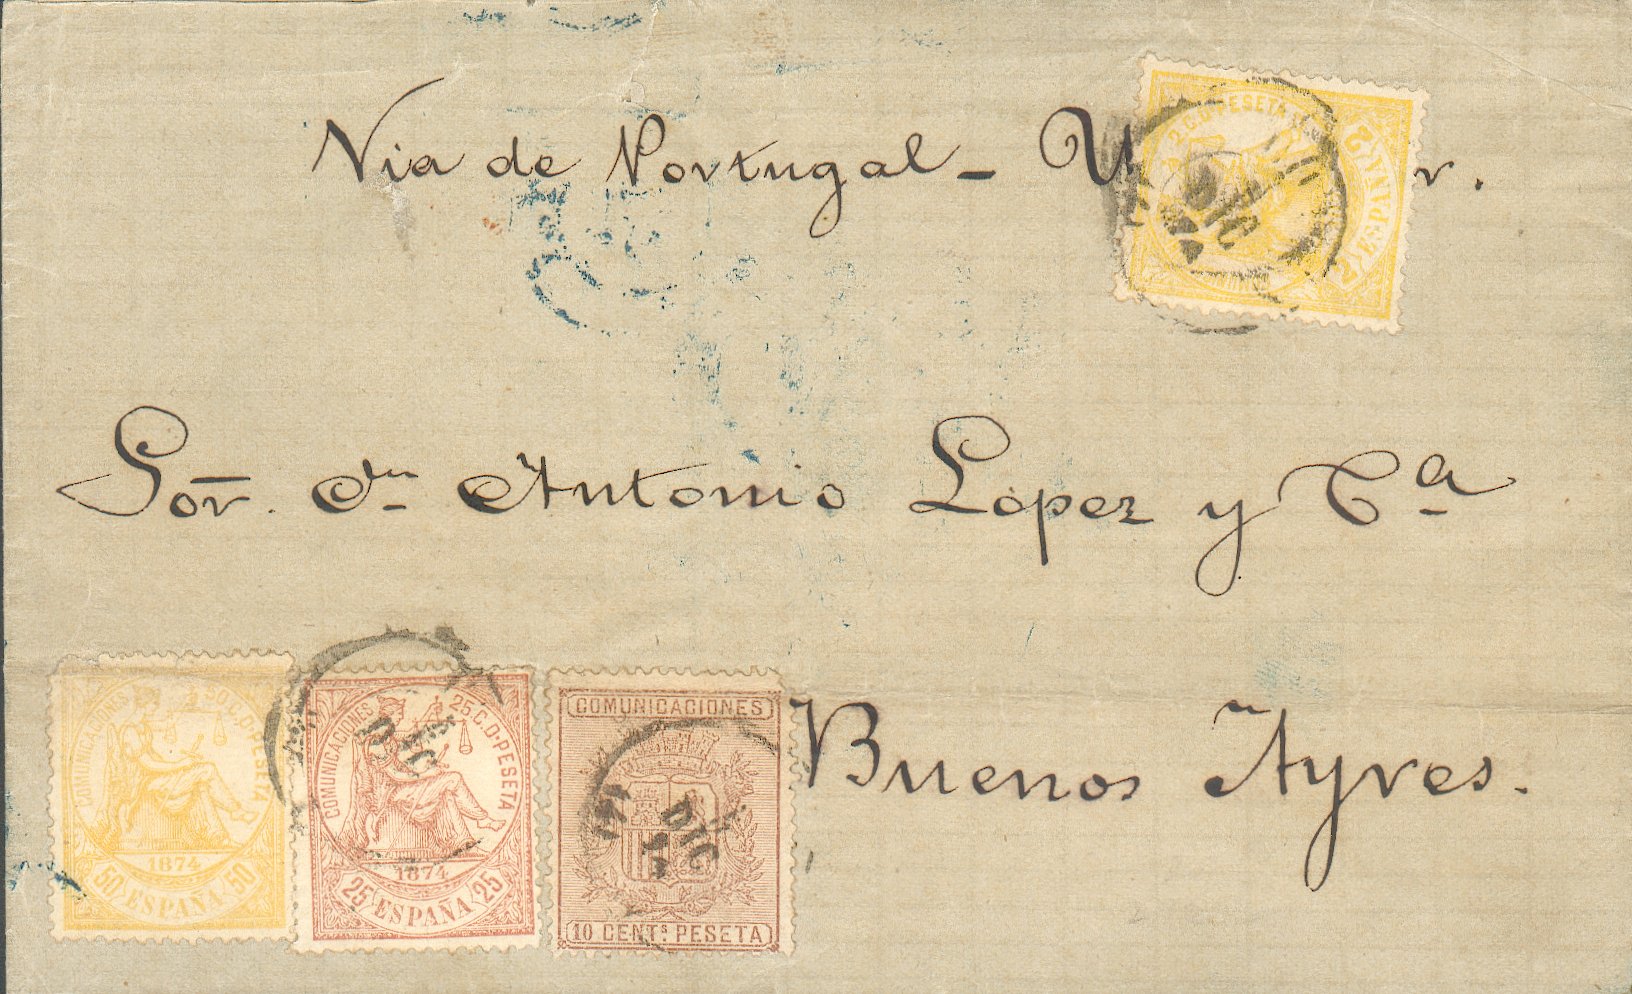 Via de Portugal - r.
2 C. D PESETA
2 ESPAÑA 2
DIC
74
Sor. Dn Antonio Lopez y Cª
COMUNICACIONES 50 C. D PESETA
1874
50 ESPAÑA 50
COMUNICACIONES 25 C. D PESETA
DIC
1874
25 ESPAÑA 25
COMUNICACIONES
DIC
10 CENTS PESETA
Buenos Ayres.